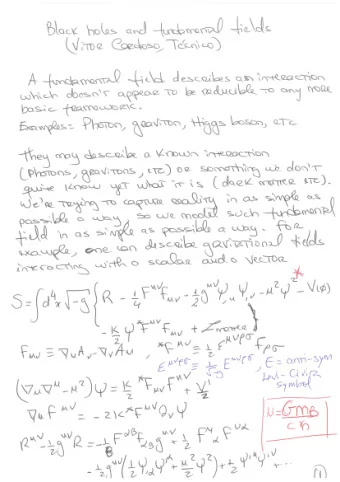 Black holes and fundamental fields
(Vitor Cardoso, Técnico)
A fundamental field describes an interaction
which doesn't appear to be reducible to any more
basic framework.
Examples: Photon, graviton, Higgs boson, etc
They may describe a known interaction
(photons, gravitons, etc) or something we don't
quite know yet what it is (dark matter etc).
We're trying to capture reality in as simple as
possible a way, so we model such fundamental
field in as simple as possible a way. For
example, one can describe gravitational fields
interacting with a scalar and a vector
S = ∫d⁴x √-g { R - 1/4 F^μν F_μν - 1/2 g^μν Ψ,μ Ψ,ν - μ² Ψ² - V(φ)
- K/2 Ψ *F^μν F_μν + L matter }
F_μν ≡ ∇_μ A_ν - ∇_ν A_μ , *F^μν ≡ 1/2 ε^μνρσ F_ρσ
ε^μνρσ ≡ 1/√-g E^μνρσ , E = anti-sym
Levi-Civita
symbol
(∇_μ ∇^μ - μ²) Ψ = K/2 *F_μν F^μν + V'/2
∇_μ F^μν = -2K *F^μν ∂_μ Ψ
μ = G m_B / c ħ
R^μν - 1/2 g^μν R = -1/8 F^αβ F_αβ g^μν + 1/2 F^μ_α F^να
- 1/2 g^μν ( 1/2 Ψ,α Ψ^,α + μ²/2 Ψ² ) + 1/2 Ψ^,μ Ψ^,ν
+ ...
(1)